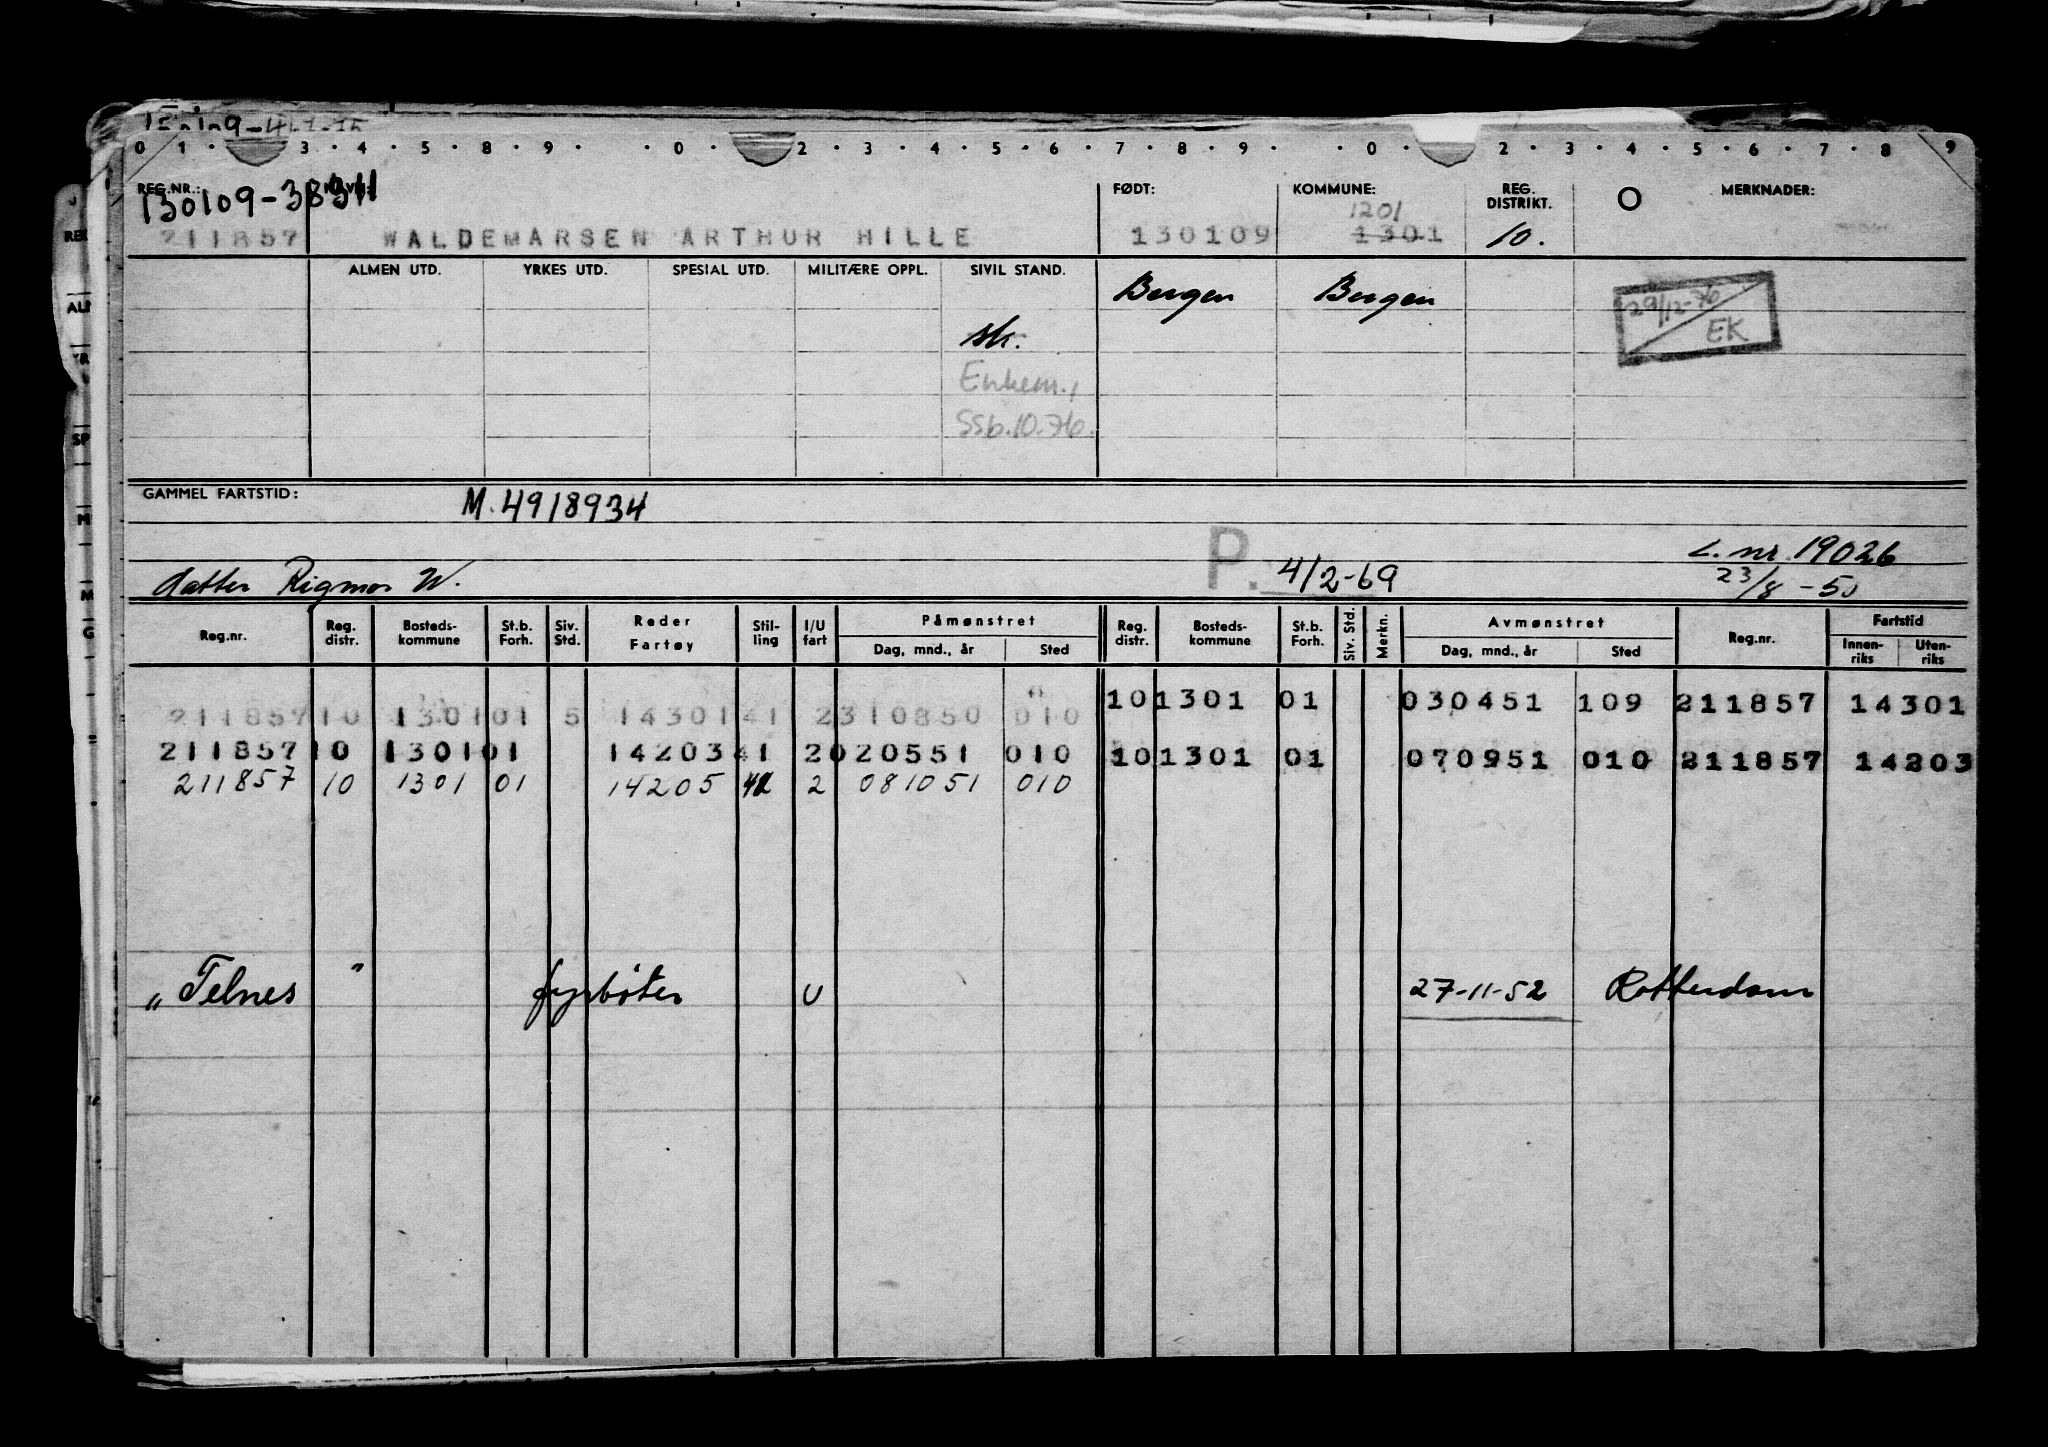 0 1 · 3 · 4 · 5 · 8 · 9 · · 0 · 2 · 3 · 4 · 5 · 6 · 7 · 8 · 9 · · 0 · 2 · 3 · 4 · 5 · 6 · 7 · 8 · 9
REG.NR.: FØDT: KOMMUNE: REG. DISTRIKT. MERKNADER:
130109-38311 1201
211857 WALDEMARSEN ARTHUR HILLE 130109 1301 10.
ALMEN UTD. YRKES UTD. SPESIAL UTD. MILITÆRE OPPL. SIVIL STAND.
Bergen Bergen 29/12-76
EK
sk.
Enkem.,
SSb.10.76.
GAMMEL FARTSTID: M.4918934
P. 4/2-69 L. nr. 19026
datter Rigmor W. 23/8 -50
Reg.nr. Reg. distr. Bosteds-kommune St.b. Forh. Siv. Std. Reder Fartøy Stil-ling I/U fart Påmønstret Dag, mnd., år Sted Reg. distr. Bosteds-kommune St.b. Forh. Siv. Std. Merkn. Avmønstret Dag, mnd., år Sted Reg.nr. Fartstid Innen-riks Uten-riks
211857 10 1301 01 5 14301 41 2 310850 010 10 1301 01 030451 109 211857 14301
211857 10 1301 01 14203 41 2 020551 010 10 1301 01 070951 010 211857 14203
211857 10 1301 01 14205 42 2 081051 010
" Telnes " fyrbøter U 27-11-52 Rotterdam